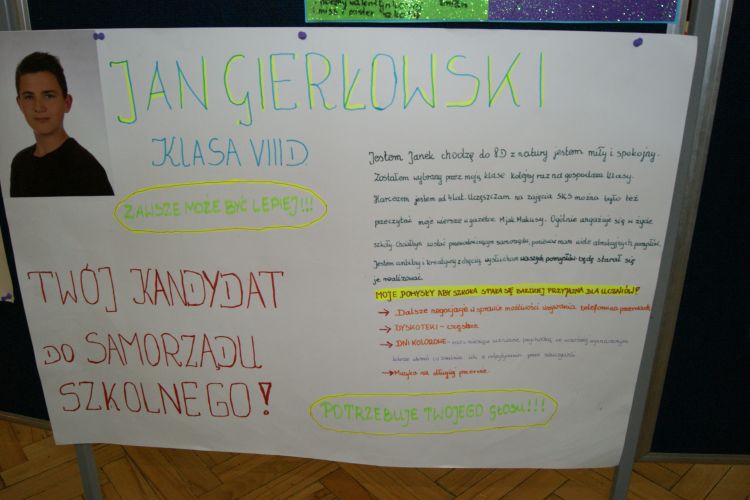 JAN GIERŁOWSKI
KLASA VIIID
ZAWSZE MOŻE BYĆ LEPIEJ!!!
TWÓJ KANDYDAT
DO SAMORZĄDU
SZKOLNEGO!
Jestem Janek chodzę do 8D z natury jestem miły i spokojny.
Zostałem wybrany przez moją klasę kolejny raz na gospodarza klasy.
Harcerzem jestem od 4 lat. Uczęszczam na zajęcia SKS można było też
przeczytać moje wiersze w gazetce Mjak Makusy. Ogólnie angażuje się w życie
szkoły. Chciałbym zostać przewodniczącym samorządu, ponieważ mam wiele pomysłów.
Jestem ambitny i kreatywny z chęcią wysłucham waszych pomysłów będę starał się
je realizować.
MOJE POMYSŁY ABY SZKOŁA STAŁA SIĘ BARDZIEJ PRZYJAZNA DLA UCZNIÓW?
→ Dalsze negocjacje w sprawie możliwości używania telefonu na przerwach
→ DYSKOTEKI - częstsze
→ DNI KOLOROWE - raz w miesiącu
→ Muzyka na długiej przerwie.
POTRZEBUJE TWOJEGO GŁOSU!!!